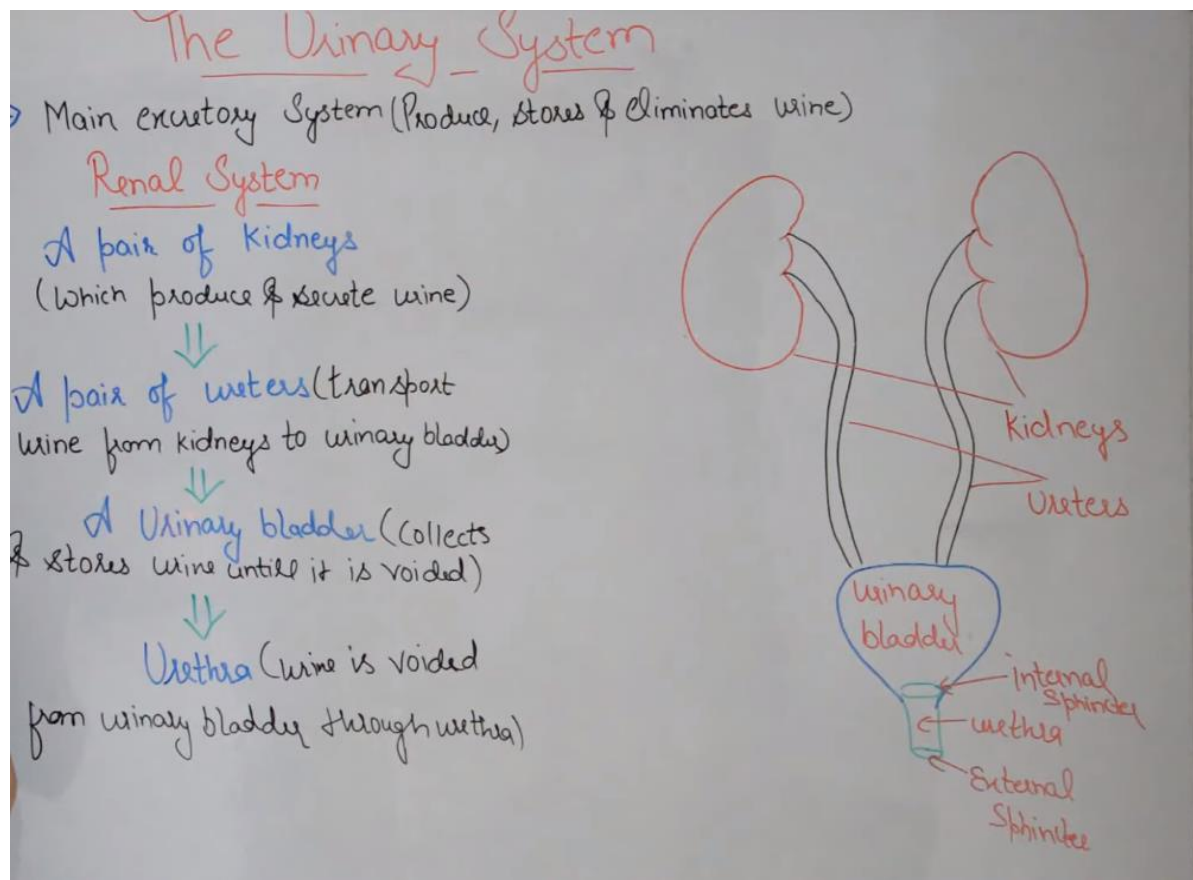 The Urinary System
→ Main excretory System (Produce, stores & Eliminates urine)
Renal System
A pair of Kidneys
(which produce & secrete urine)
⇓
A pair of ureters (transport
urine from kidneys to urinary bladder)
⇓
A Urinary bladder (Collects
& stores urine untill it is voided)
⇓
Urethra (urine is voided
from urinary bladder through urethra)
Kidneys
Ureters
urinary
bladder
internal
Sphincter
urethra
External
Sphincter